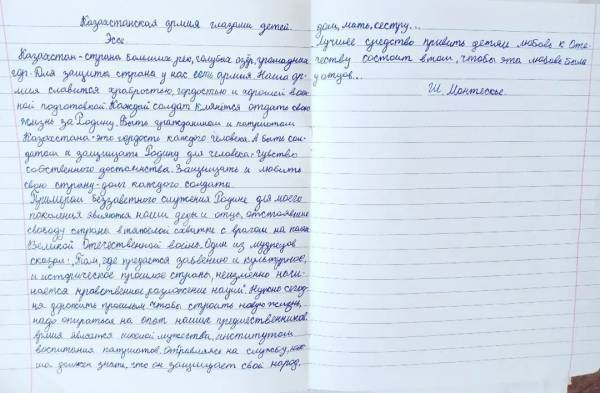 Казахстанская армия глазами детей.
Эссе.
Казахстан - страна больших рек, голубых озёр, громадных
гор. Для защиты страны у нас есть армия. Наша ар-
мия славится храбростью, гордостью и хорошей воен-
ной подготовкой. Каждый солдат клянётся отдать свою
жизнь за Родину. Быть гражданином и патриотом
Казахстана - это гордость каждого человека. А быть сол-
датом и защищать Родину для человека - чувство
собственного достоинства. Защищать и любить
свою страну - долг каждого солдата.
Примером беззаветного служения Родине для моего
поколения являются наши деды и отцы, отстоявшие
свободу страны в тяжелой схватке с врагом на полях
Великой Отечественной войне. Один из мудрецов
сказал: "Там, где предается забвению и культурное,
и историческое прошлое страны, неизменно начи-
нается нравственное разложение нации". Нужно сегод-
ня дорожить прошлым. Чтобы строить новую жизнь,
надо опираться на опыт наших предшественников.
Армия является школой мужества, институтом
воспитания патриотов. Отправляясь на службу, юно-
ша должен знать, что он защищает свой народ,
дом, мать, сестру...
Лучшее средство привить детям любовь к Оте-
честву состоит в том, чтобы эта любовь была
у отцов...
Ш. Монтескье.